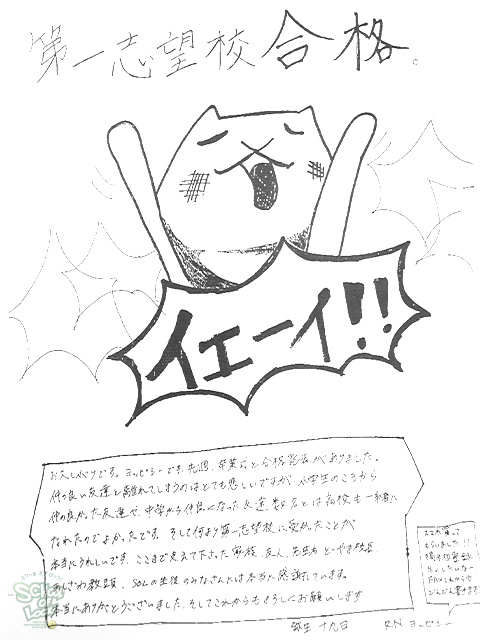 第一志望校合格。
イエーイ!!
お久しぶりです。ヨッピシーです。先週、卒業式と合格発表がありました。
仲の良い友達と離れてしまうのはとても悲しいですが、小学生のころから
仲の良かった友達や、中学から仲良くなった友達数名とは高校も一緒に
なれたのでよかったです。そして何より第一志望校に受かったことが
本当にうれしいです。ここまで支えて下さった家族、友人、先生方、とーやま校長、
あしざわ教頭、SOLの生徒のみなさんには本当に感謝しています。
本当にありがとうございました。そしてこれからもよろしくお願いします
弥生 十九日
RN ヨッピシー
スマホ買って
もらいました!!
FAXもこれからも
どんどん書きます!